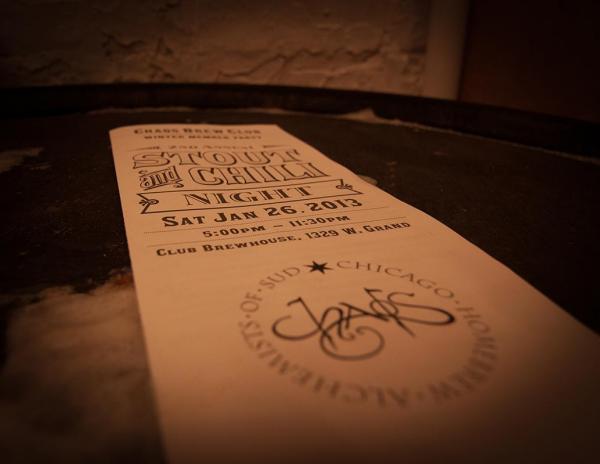 Chaos Brew Club
Winter Member Party
2nd Annual
STOUT
and CHILI
NIGHT
Sat Jan 26, 2013
5:00pm – 11:30pm
Club Brewhouse, 1329 W. Grand
CHICAGO · HOMEBREW · ALCHEMISTS · OF · SUD
CHAOS